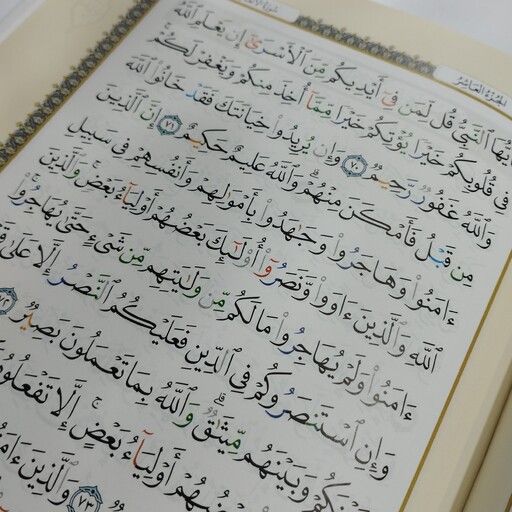 سورة الأنفال
الجزء العاشر
يَٰٓأَيُّهَا ٱلنَّبِىُّ قُل لِّمَن فِىٓ أَيْدِيكُم مِّنَ ٱلْأَسْرَىٰٓ إِن يَعْلَمِ ٱللَّهُ
فِى قُلُوبِكُمْ خَيْرًا يُؤْتِكُمْ خَيْرًا مِّمَّآ أُخِذَ مِنكُمْ وَيَغْفِرْ لَكُمْ
وَٱللَّهُ غَفُورٌ رَّحِيمٌ ٧٠ وَإِن يُرِيدُوا۟ خِيَانَتَكَ فَقَدْ خَانُوا۟ ٱللَّهَ
مِن قَبْلُ فَأَمْكَنَ مِنْهُمْ ۗ وَٱللَّهُ عَلِيمٌ حَكِيمٌ ٧١ إِنَّ ٱلَّذِينَ
ءَامَنُوا۟ وَهَاجَرُوا۟ وَجَٰهَدُوا۟ بِأَمْوَٰلِهِمْ وَأَنفُسِهِمْ فِى سَبِيلِ
ٱللَّهِ وَٱلَّذِينَ ءَاوَوا۟ وَّنَصَرُوٓا۟ أُو۟لَٰٓئِكَ بَعْضُهُمْ أَوْلِيَآءُ بَعْضٍ ۚ وَٱلَّذِينَ
ءَامَنُوا۟ وَلَمْ يُهَاجِرُوا۟ مَا لَكُم مِّن وَلَٰيَتِهِم مِّن شَىْءٍ حَتَّىٰ يُهَاجِرُوا۟ ۚ
وَإِنِ ٱسْتَنصَرُوكُمْ فِى ٱلدِّينِ فَعَلَيْكُمُ ٱلنَّصْرُ إِلَّا عَلَىٰ قَوْمٍ
بَيْنَكُمْ وَبَيْنَهُم مِّيثَٰقٌ ۗ وَٱللَّهُ بِمَا تَعْمَلُونَ بَصِيرٌ ٧٢
بَعْضُهُمْ أَوْلِيَآءُ بَعْضٍ ۚ إِلَّا تَفْعَلُوهُ
٧٣ وَٱلَّذِينَ